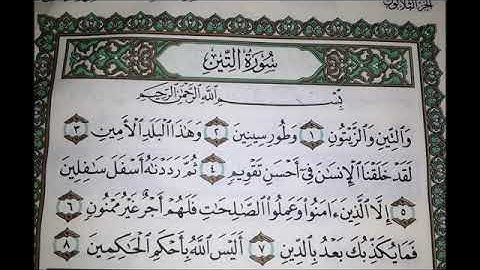 الجزء الثلاثون
سُورَةُ التِّينِ
بِسْمِ اللَّهِ الرَّحْمَٰنِ الرَّحِيمِ
وَالتِّينِ وَالزَّيْتُونِ ١ وَطُورِ سِينِينَ ٢ وَهَٰذَا الْبَلَدِ الْأَمِينِ ٣
لَقَدْ خَلَقْنَا الْإِنسَٰنَ فِي أَحْسَنِ تَقْوِيمٍ ٤ ثُمَّ رَدَدْنَٰهُ أَسْفَلَ سَٰفِلِينَ
٥ إِلَّا الَّذِينَ ءَامَنُوا وَعَمِلُوا الصَّٰلِحَٰتِ فَلَهُمْ أَجْرٌ غَيْرُ مَمْنُونٍ ٦
فَمَا يُكَذِّبُكَ بَعْدُ بِالدِّينِ ٧ أَلَيْسَ اللَّهُ بِأَحْكَمِ الْحَٰكِمِينَ ٨